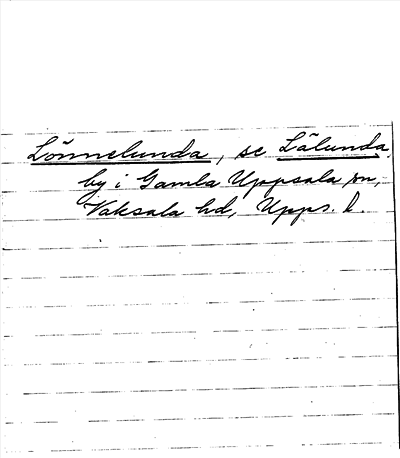 Lönnelunda, se Lälunda,
by i Gamla Uppsala sn,
Vaksala hd, Upps. l.